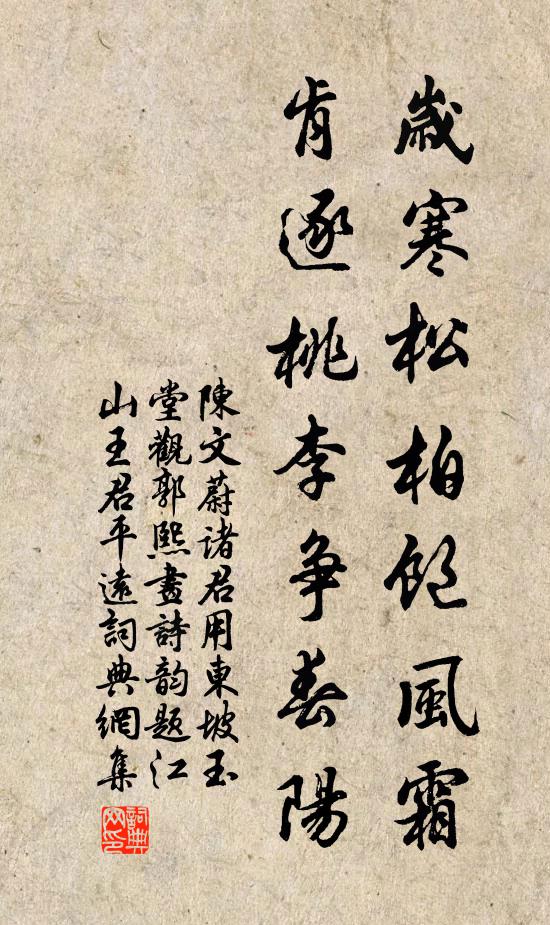 歲寒松柏飽風霜
肯逐桃李爭春陽
陳文蔚諸君用東坡玉
堂觀郭熙畫詩韵題江
山王君平遠詞典網集
詞典
网印